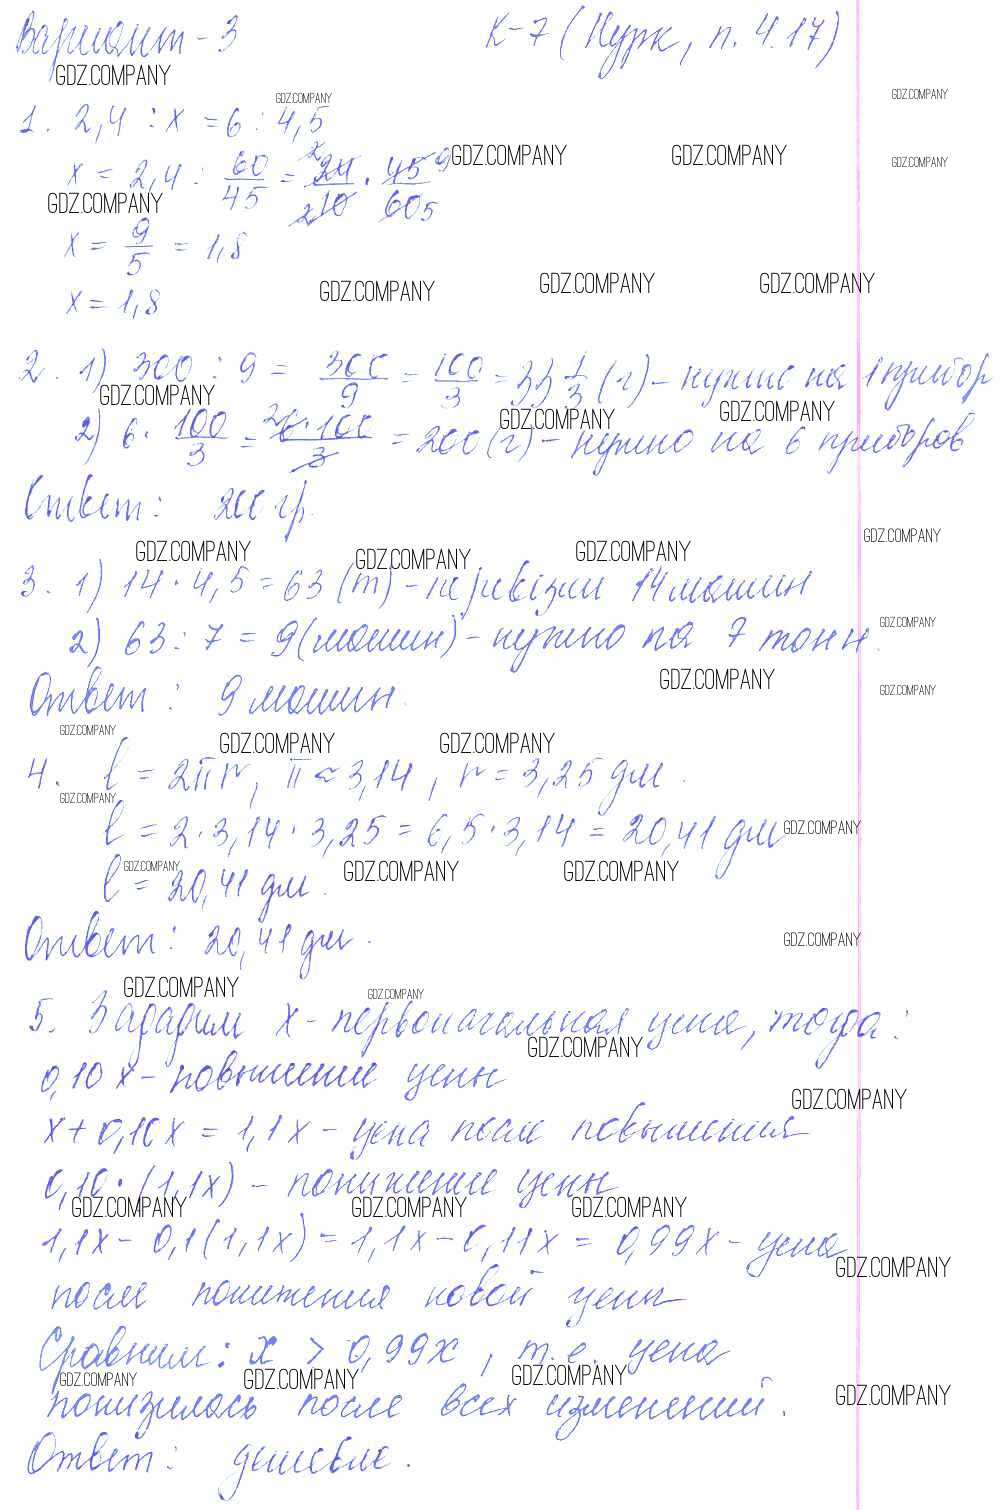 Вариант - 3 К-7 (Нурк, п. 4.17)
GDZ.COMPANY
GDZ.COMPANY GDZ.COMPANY
1. 2,4 : x = 6 : 4,5
GDZ.COMPANY GDZ.COMPANY GDZ.COMPANY
x = 2,4 : 60/45 = 24/10 · 45/60 2 9 2 5
GDZ.COMPANY
x = 9/5 = 1,8
GDZ.COMPANY GDZ.COMPANY GDZ.COMPANY
x = 1,8
2. 1) 300 : 9 = 300/9 = 100/3 = 33 1/3 (г) - нужно на 1 прибор
GDZ.COMPANY GDZ.COMPANY GDZ.COMPANY
2) 6 · 100/3 = 6·100/3 2 = 200 (г) - нужно на 6 приборов
Ответ: 200 гр.
GDZ.COMPANY GDZ.COMPANY GDZ.COMPANY GDZ.COMPANY
3. 1) 14 · 4,5 = 63 (т) - перевезли 14 машин
GDZ.COMPANY
2) 63 : 7 = 9 (машин) - нужно на 7 тонн.
GDZ.COMPANY GDZ.COMPANY
Ответ: 9 машин.
GDZ.COMPANY GDZ.COMPANY GDZ.COMPANY
4. l = 2πr, π ≈ 3,14, r = 3,25 дм.
GDZ.COMPANY
l = 2 · 3,14 · 3,25 = 6,5 · 3,14 = 20,41 дм
GDZ.COMPANY
GDZ.COMPANY GDZ.COMPANY GDZ.COMPANY
l = 20,41 дм.
Ответ: 20,41 дм.
GDZ.COMPANY
GDZ.COMPANY GDZ.COMPANY
5. Зададим x - первоначальная цена, тогда:
GDZ.COMPANY
0,10x - повышение цены
GDZ.COMPANY
x + 0,10x = 1,1x - цена после повышения
0,10 · (1,1x) - понижение цены
GDZ.COMPANY GDZ.COMPANY GDZ.COMPANY
1,1x - 0,1(1,1x) = 1,1x - 0,11x = 0,99x - цена
GDZ.COMPANY
после понижения новой цены
Сравним: x > 0,99x, т.е. цена
GDZ.COMPANY GDZ.COMPANY GDZ.COMPANY
GDZ.COMPANY
понизилась после всех изменений.
Ответ: дешевле.